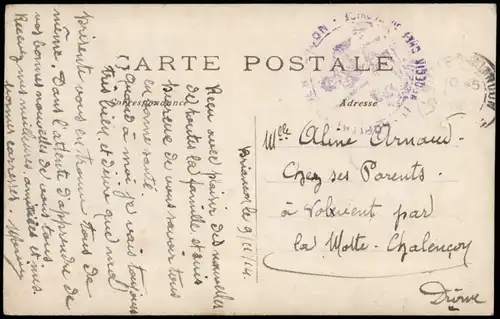 CARTE POSTALE
Correspondance
Adresse
Briançon le 9/11/14
Reçu avec plaisir des nouvelles
de toute la famille et suis
heureux de vous savoir tous
en bonne santé.
Quand à moi je vais toujours
très bien et désire que ma
présente vous en trouve tous de
même. Dans l'attente d'apprendre de
vos bonnes nouvelles de vous tous
Recevez mes meilleures amitiés et mes
bonnes caresses.
Mlle Aline Arnaud
Chez ses Parents
à Volvent par
la Motte-Chalençon
Drôme